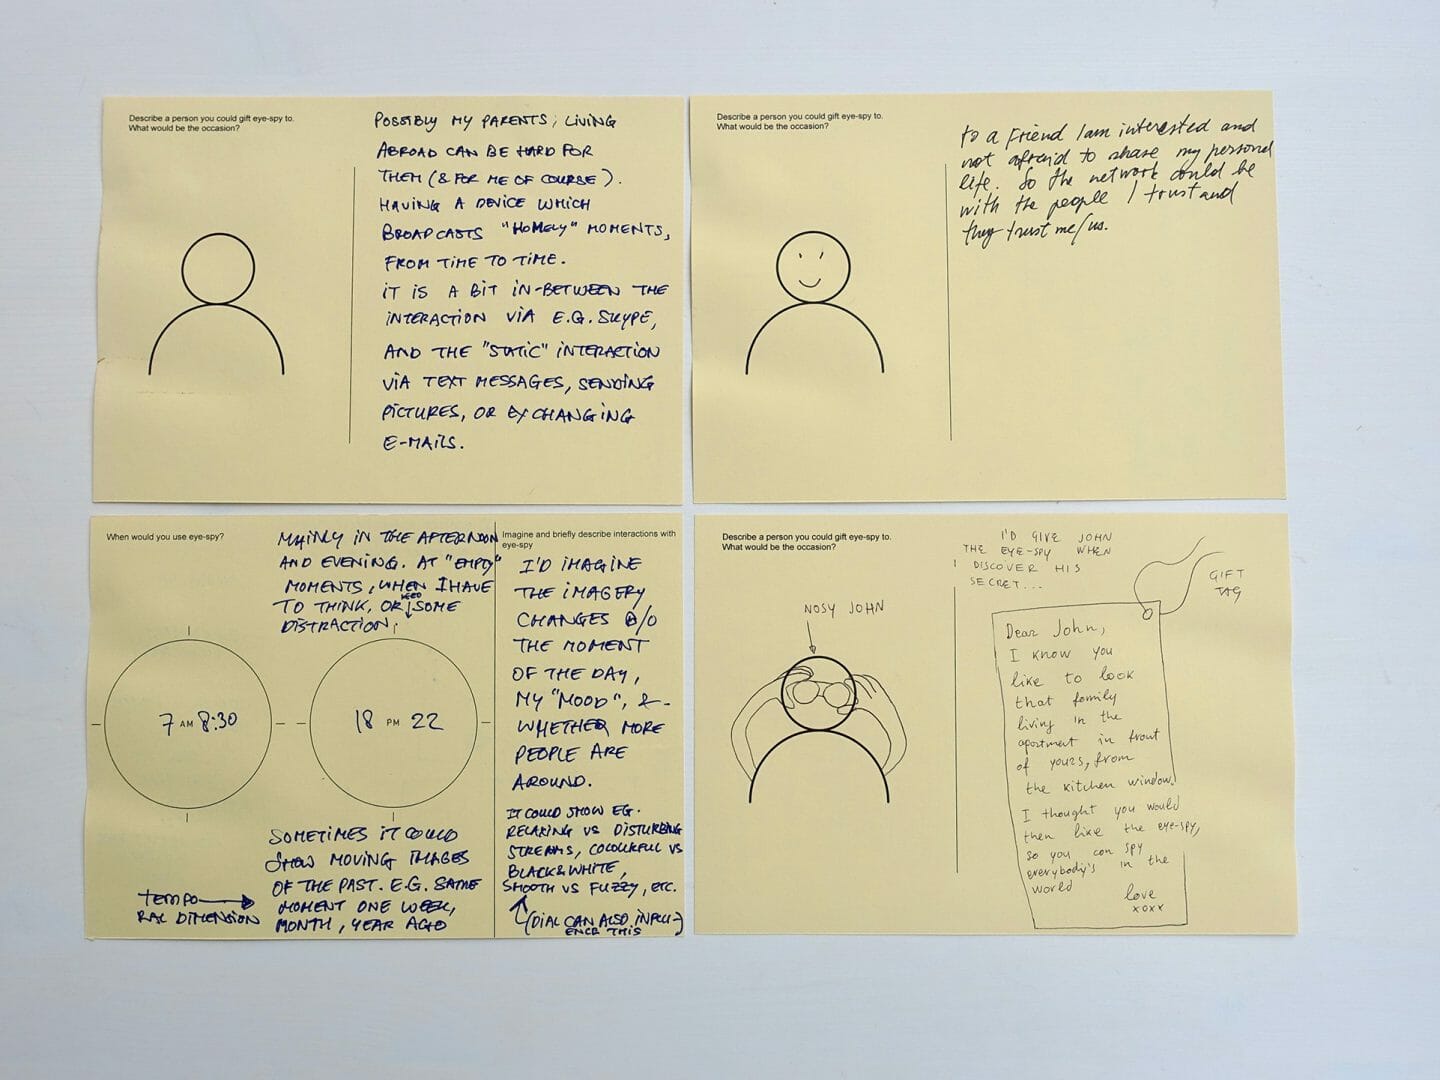 Describe a person you could gift eye-spy to.
What would be the occasion?
POSSIBLY MY PARENTS; LIVING
ABROAD CAN BE HARD FOR
THEM (& FOR ME OF COURSE).
HAVING A DEVICE WHICH
BROADCASTS "HOMELY" MOMENTS,
FROM TIME TO TIME.
IT IS A BIT IN-BETWEEN THE
INTERACTION VIA E.G. SKYPE,
AND THE "STATIC" INTERACTION
VIA TEXT MESSAGES, SENDING
PICTURES, OR EXCHANGING
E-MAILS.
Describe a person you could gift eye-spy to.
What would be the occasion?
to a friend I am interested and
not afraid to share my personal
life. So the network could be
with the people I trust and
they trust me/us.
When would you use eye-spy?
MAINLY IN THE AFTERNOON
AND EVENING. AT "EMPTY"
MOMENTS, WHEN I HAVE
TO THINK, OR NEED SOME
DISTRACTION.
7 AM 8:30
18 PM 22
SOMETIMES IT COULD
SHOW MOVING IMAGES
OF THE PAST. E.G. SAME
MOMENT ONE WEEK,
MONTH, YEAR AGO
TEMPO
RAL DIMENSION
Imagine and briefly describe interactions with
eye-spy
I'D IMAGINE
THE IMAGERY
CHANGES O/O
THE MOMENT
OF THE DAY,
MY "MOOD", &
WHETHER MORE
PEOPLE ARE
AROUND.
IT COULD SHOW EG.
RELAXING VS DISTURBING
STREAMS, COLOURFUL VS
BLACK&WHITE,
SMOOTH VS FUZZY, ETC.
(DIAL CAN ALSO INFLU-
ENCE THIS)
Describe a person you could gift eye-spy to.
What would be the occasion?
I'D GIVE JOHN
THE EYE-SPY WHEN
I DISCOVER HIS
SECRET...
GIFT
TAG
NOSY JOHN
Dear John,
I know you
like to look
that family
living in the
apartment in front
of yours, from
the kitchen window.
I thought you would
then like the eye-spy,
so you can spy
everybody's in the
world
love
xoxx